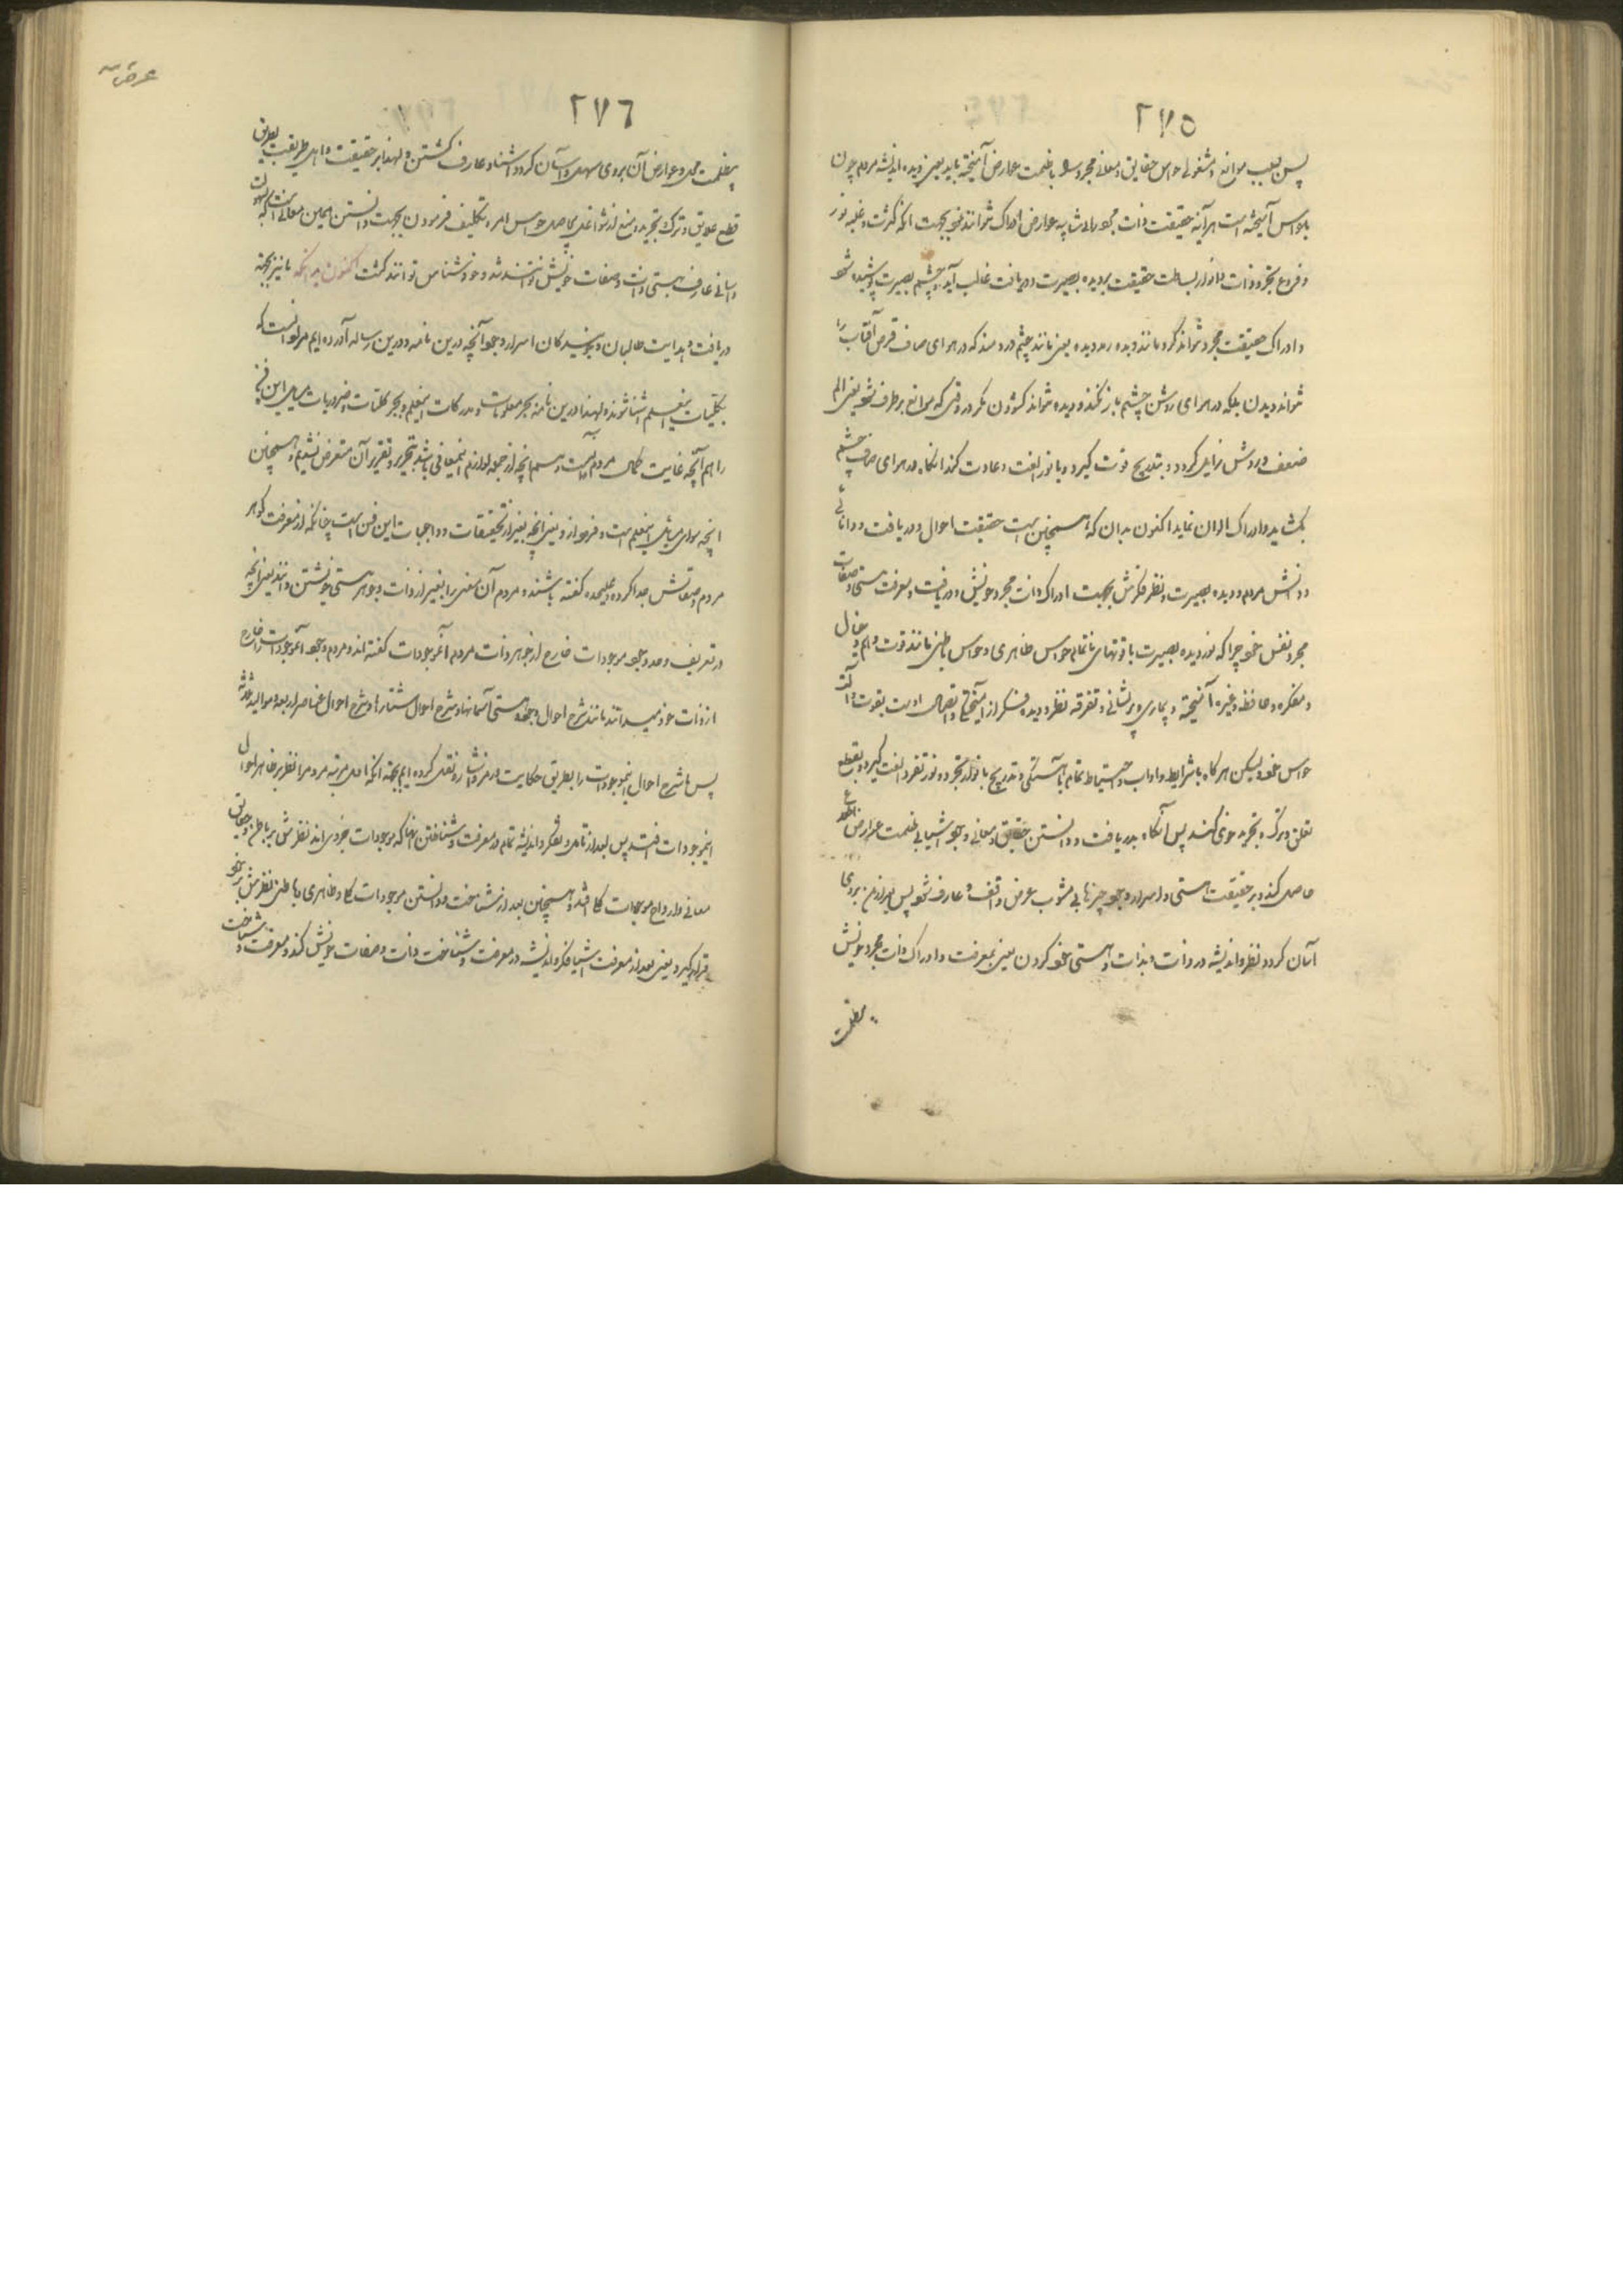 ٢٧٥
پس بسبب موانع و مشغولی حواس حقایق و معانی مجرد و بی ظلمت عوارض آمیخته باید یعنی دیده اندیشه مردم چون
بحواس آمیخته است هرآینه حقیقت ذات مجرد بی شایبه عوارض ادراک نتوانند نمود بجهت آنکه کثرت و غلبه نور
و فروغ تجرد ذات و انوار بساطت حقیقت بر دیده بصیرت و دریافت غالب آید و چشم بصیرت پوشیده شود
و ادراک حقیقت مجرد نتواند کرد مانند دیده رمد دیده یعنی مانند چشم دردمند که در هوای صاف قرص آفتاب را
نتواند دیدن بلکه در هوای روشن چشم باز نکند و دیده نتواند کشودن مگر در وقتی که موانع برطرف شود یعنی الم
ضعف و دردش زایل گردد و بتدریج قوت گیرد و با نور الفت و عادت کند آنگاه در هوای صاف چشم
بگشاید و ادراک الوان نماید اکنون بدان که همچنین است حقیقت احوال و دریافت و دانائی
و دانش مردم و دیده بصیرت و نظر فکرتش بجهت ادراک ذات مجرد خویش و دریافت و معرفت هستی و صفات
مجرد نفس خود چرا که نور دیده بصیرت با قوتهای تمام حواس ظاهری و حواس باطنی مانند قوت وهم و خیال
و متفکره و حافظه و غیره آمیخته و بیماری و پریشانی و تفرقه نظر و دیده فکر از آمیختگی و اتصال اوست بقوت و آلت
حواس خود ولیکن هرگاه با شرایط و آداب و احتیاط تمام بآهستگی و تدریج با نوار تجرد و نور تفرد الفت گیرد و بقطع
تعلق و ترک و تجرید خوی کند پس آنگاه بدریافت و دانستن حقایق و معانی وجود اشیا بی ظلمت عوارض اطلاع
حاصل کند و بر حقیقت هستی و اسرار وجود چیزها بی مشوب عرض واقف و عارف شود پس بعد ازین بروی
آسان گردد نظر و اندیشه در ذات و بذات و هستی خود کردن یعنی بمعرفت و ادراک ذات مجرد خویش
بیظلمت
عرض
٢٧٦
بیظلمت محل و عوارض آن بروی سهل و آسان گردد آشنا و عارف گشتن و لهذا بر حقیقت و اهل طریقت بطریق
قطع علایق و ترک و تجرید و منع از شواغل بیحاصل حواس امر و تکلیف فرمودن بجهت دانستن همین معانی است که بسهولت
و آسانی عارف هستی ذات و صفات خویش توانند شد و خودشناس توانند گشت اکنون بدانکه ما نیز بجهة
دریافت و هدایت طالبان و پوشیدگان اسرار وجود آنچه درین نامه و درین رساله آورده ایم مراد آنست که
بکلیات اینعلم آشنا شوند و لهذا درین نامه بجز معلومات و مدرکات اینعلم و بجز کلیات و ضروریات مسایل این فن
را هم آنچه غایت کمال مردم است و هم آنچه از جمله لوازم اینمعانی باشد بتحریر و تقریر آن متعرض نشدیم و همچنین
آنچه سوای مبادی اینعلم است و فرود از و یعنی آنچه بغیر از تحقیقات و واجبات این فن است چنانکه از معرفت گوهر
مردم و صفاتش جدا کرده و علیحده گفته باشند و مردم آن معنی را بغیر از ذات و جوهر هستی خویشتن دانند یعنی آنچه
در تعریف و حد وجود موجودات خارج از جوهر ذات مردم آنموجودات گفته اند و مردم وجود آنموجودات را خارج
از ذات خود میدانند مانند شرح احوال وجود هستی آسمانها و شرح احوال ستارها و شرح احوال عناصر اربعه و موالید ثلاثه
پس ما شرح احوال اینموجودات را بطریق حکایت و رمز و اشاره نقل کرده ایم بجهة آنکه اول مرتبه مردم را نظر بر ظاهر احوال
اینموجودات افتد پس بعد از تامل و تفکر و اندیشه تمام در معرفت و شناختن آنها که موجودات جزوی اند نظرش بر باطن و حقایق
معانی و ارواح موجودات کلی افتد و همچنین بعد از شناخت و دانستن موجودات کلی و ظاهری و باطنی نظرش بر خود
قرار گیرد یعنی بعد از معرفت اشیا فکر و اندیشه در معرفت و شناخت ذات و صفات خویش کند و معرفت و شناخت